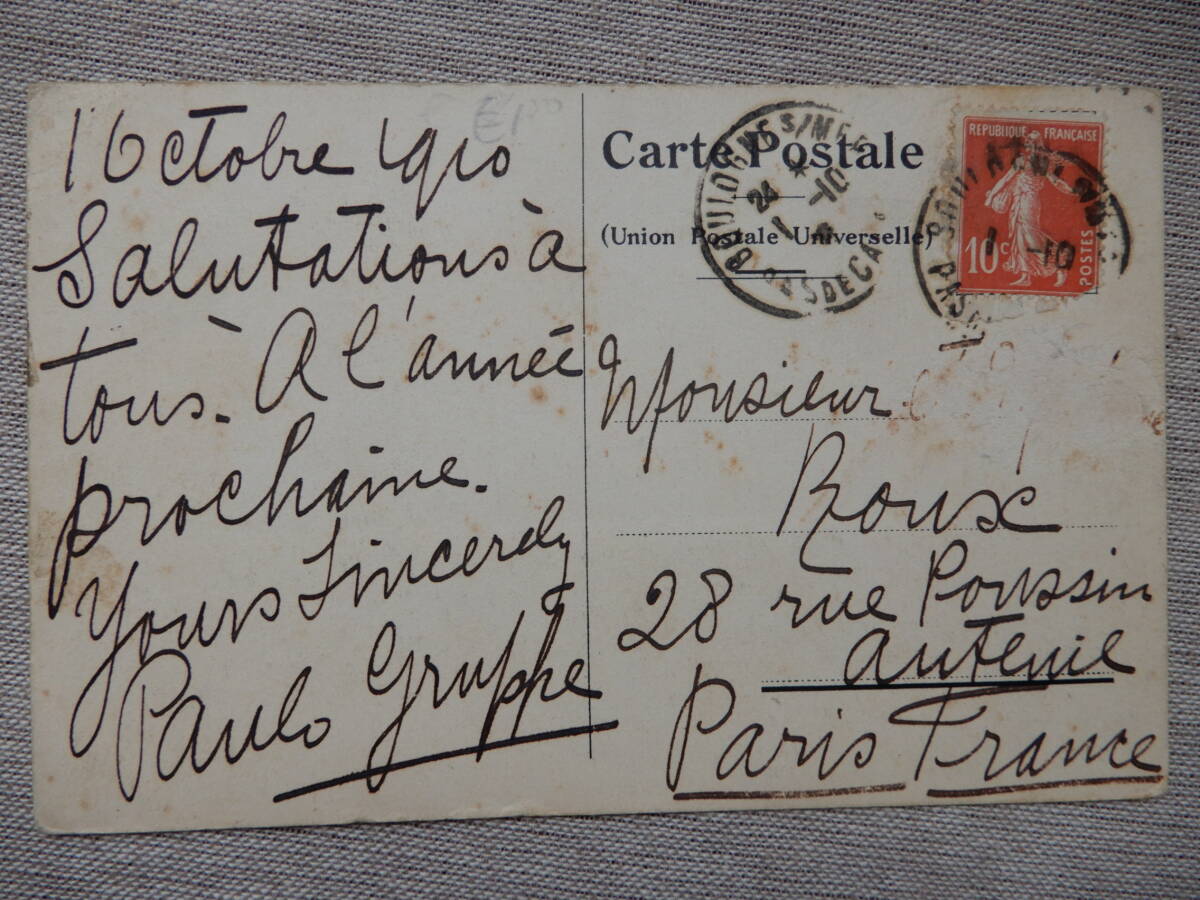 1 Octobre 1910
Salutations à
tous. A l'année
prochaine.
Yours Sincerely
Paulo Gruppe
€1,00
Carte Postale
(Union Postale Universelle)
BOULOGNE S/MER
24 *
1 -10
PAS DE CALAIS
REPUBLIQUE FRANÇAISE
10c
POSTES
1 -10
Monsieur
Roux
28 rue Poussin
auteuil
Paris France